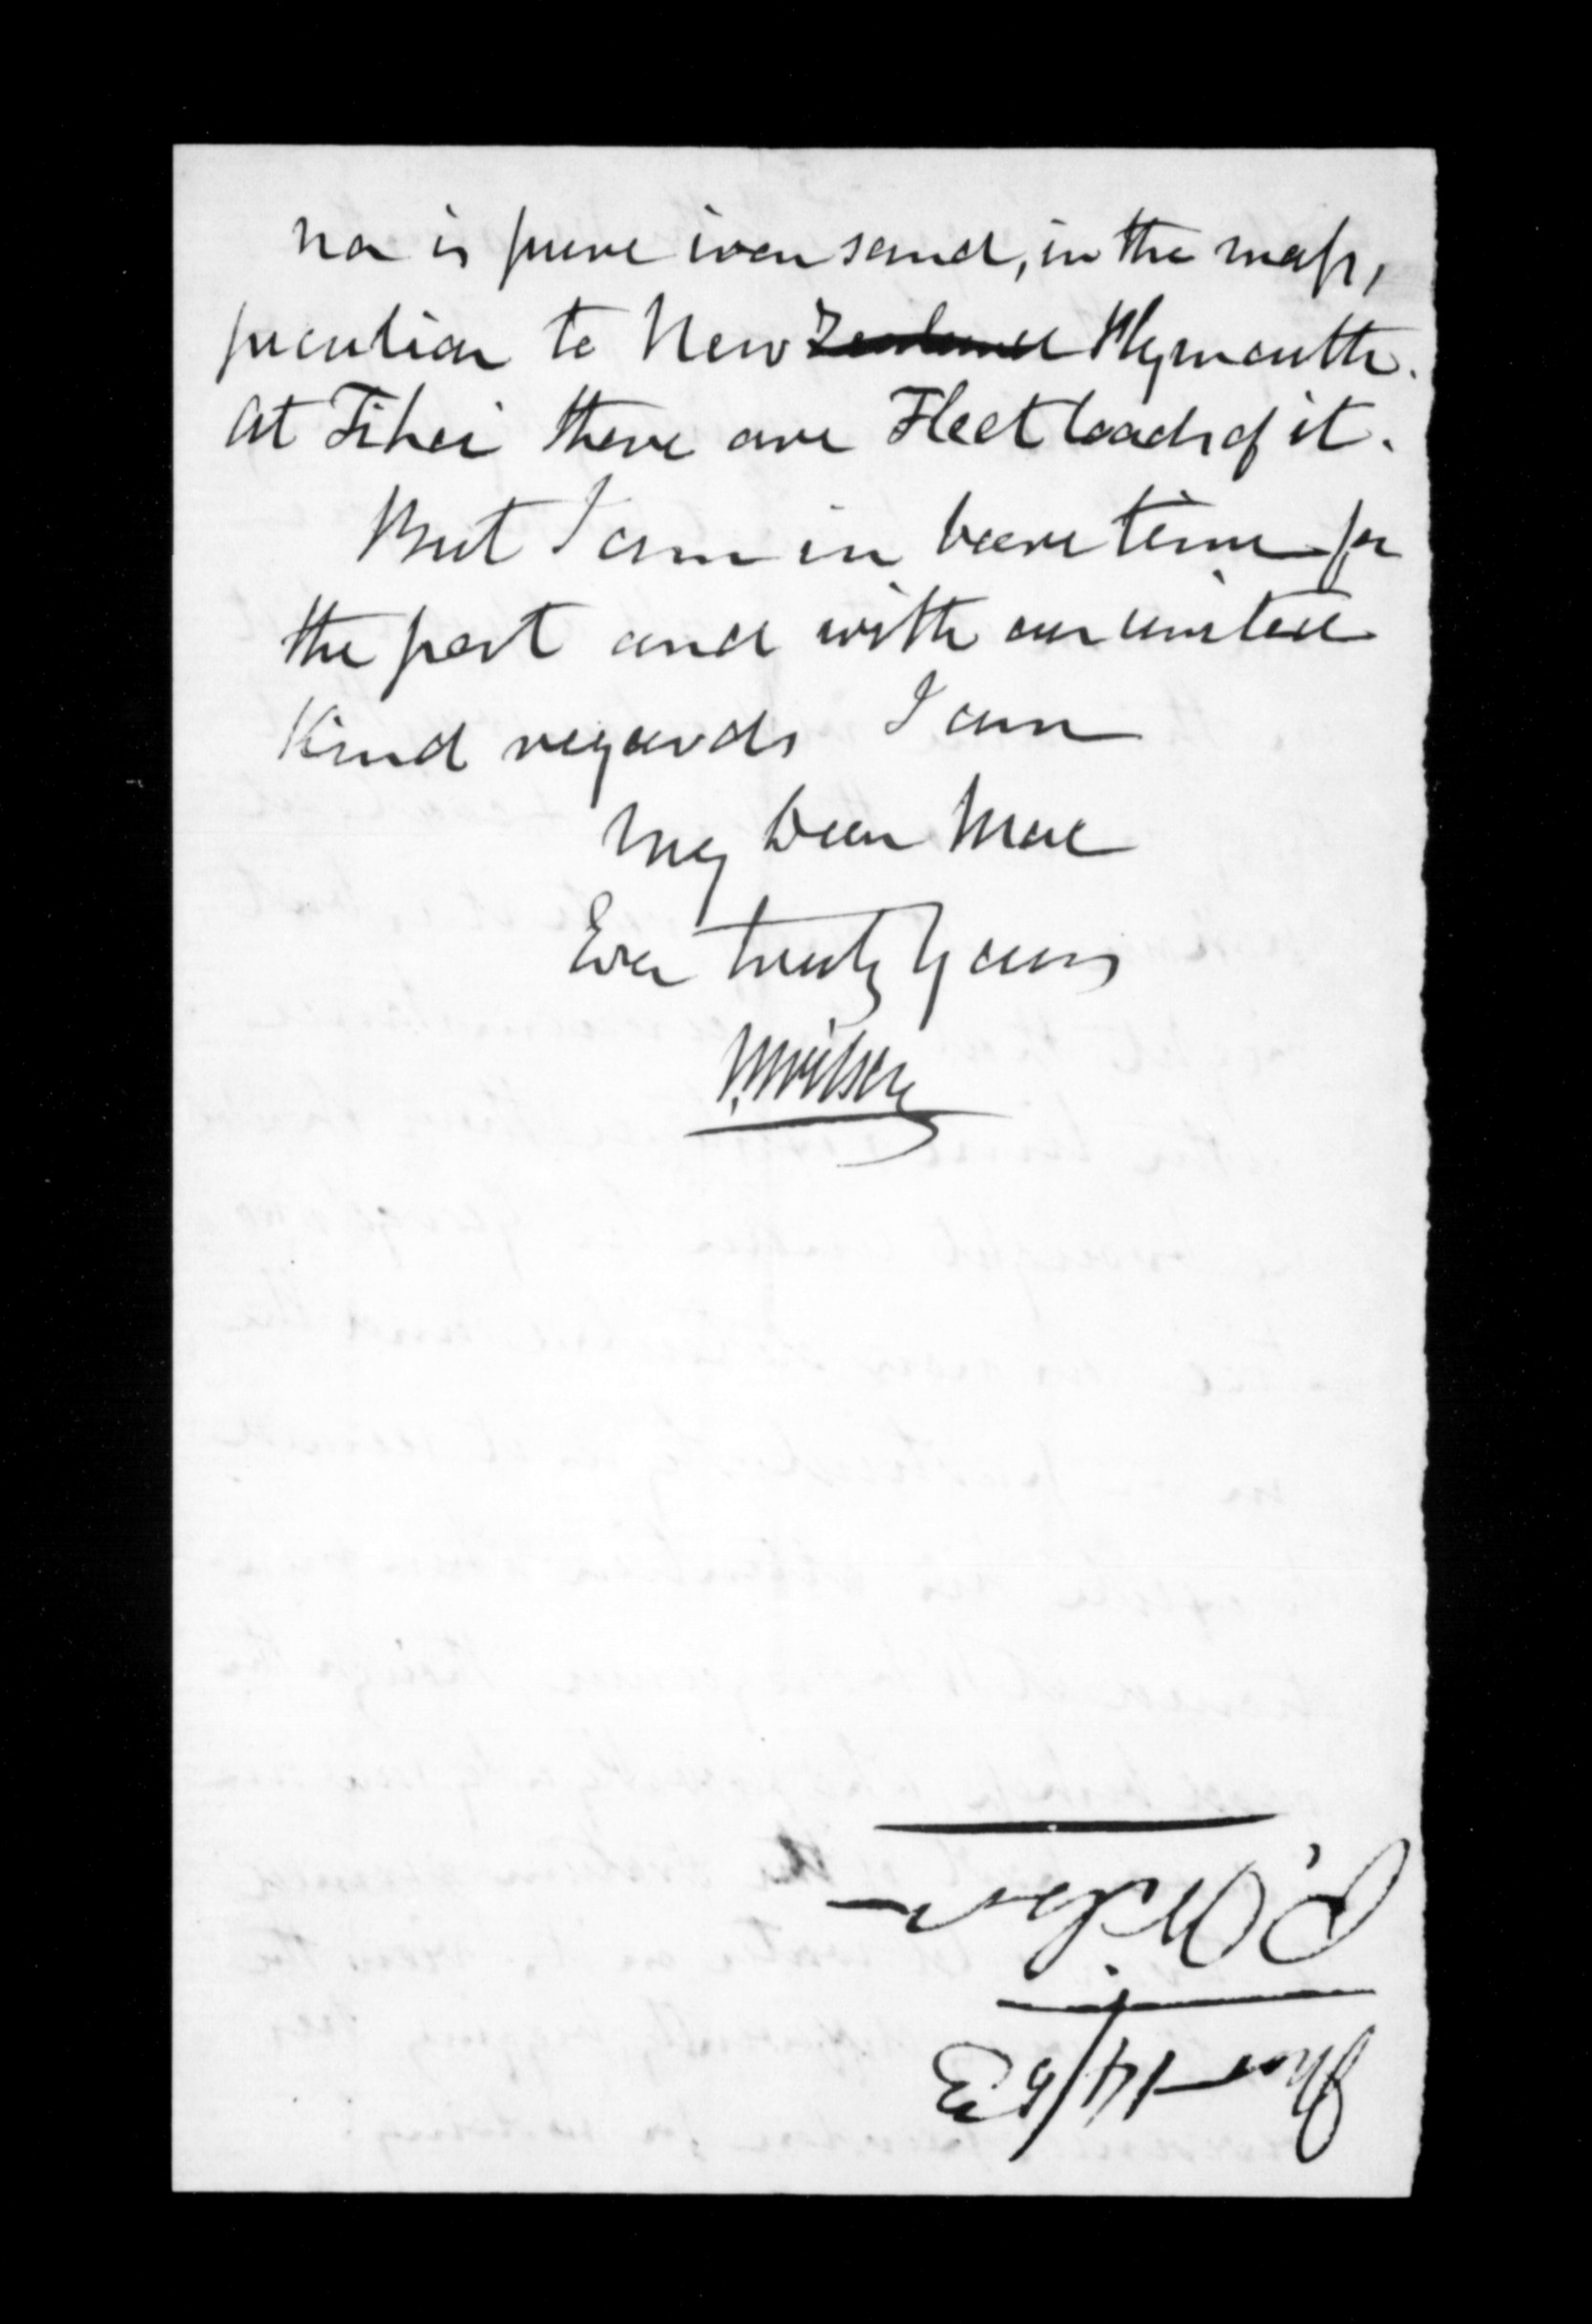 nor is pure iron sand, in the mass,
peculiar to New Zealand Plymouth.
At Tihei there are Fleet loads of it.
But I am in bare time for
the post and with our united
Kind regards I am
My dear Mac
Ever truly Yours
P. Wilson
P. Wilson
Novr 14/53